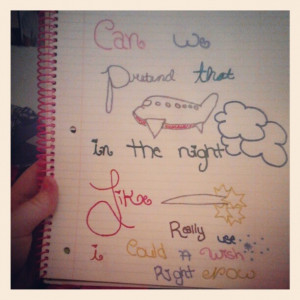 Can we
Pretend that
in the night
Like
Really use
i Could A Wish
Right now